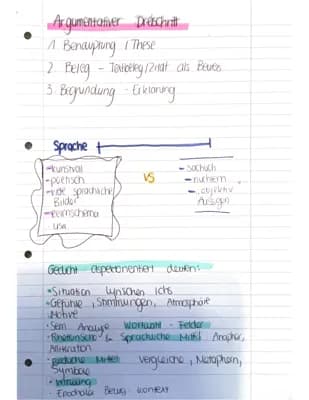 Argumentativer Dreischritt
1. Behauptung / These
2. Beleg - Textbeleg / Zitat als Beweis
3. Begründung - Erklärung
Sprache
-kunstvoll
-poetisch
-viele sprachliche
Bilder
-Reimschema
usw.
VS
- sachlich
- nüchtern
- objektiv
Gedicht aspektorientiert deuten:
•Situation lyrischen Ichs
•Gefühle, Stimmungen, Atmosphäre
Motive
•Sem. Analyse Wortwahl - Felder
•Rhetorische & Sprachliche Mittel Anapher,
Alliteration
Mittel Vergleiche, Metaphern,
Symbole
•Wirkung
Epochaler Bezug Kontext